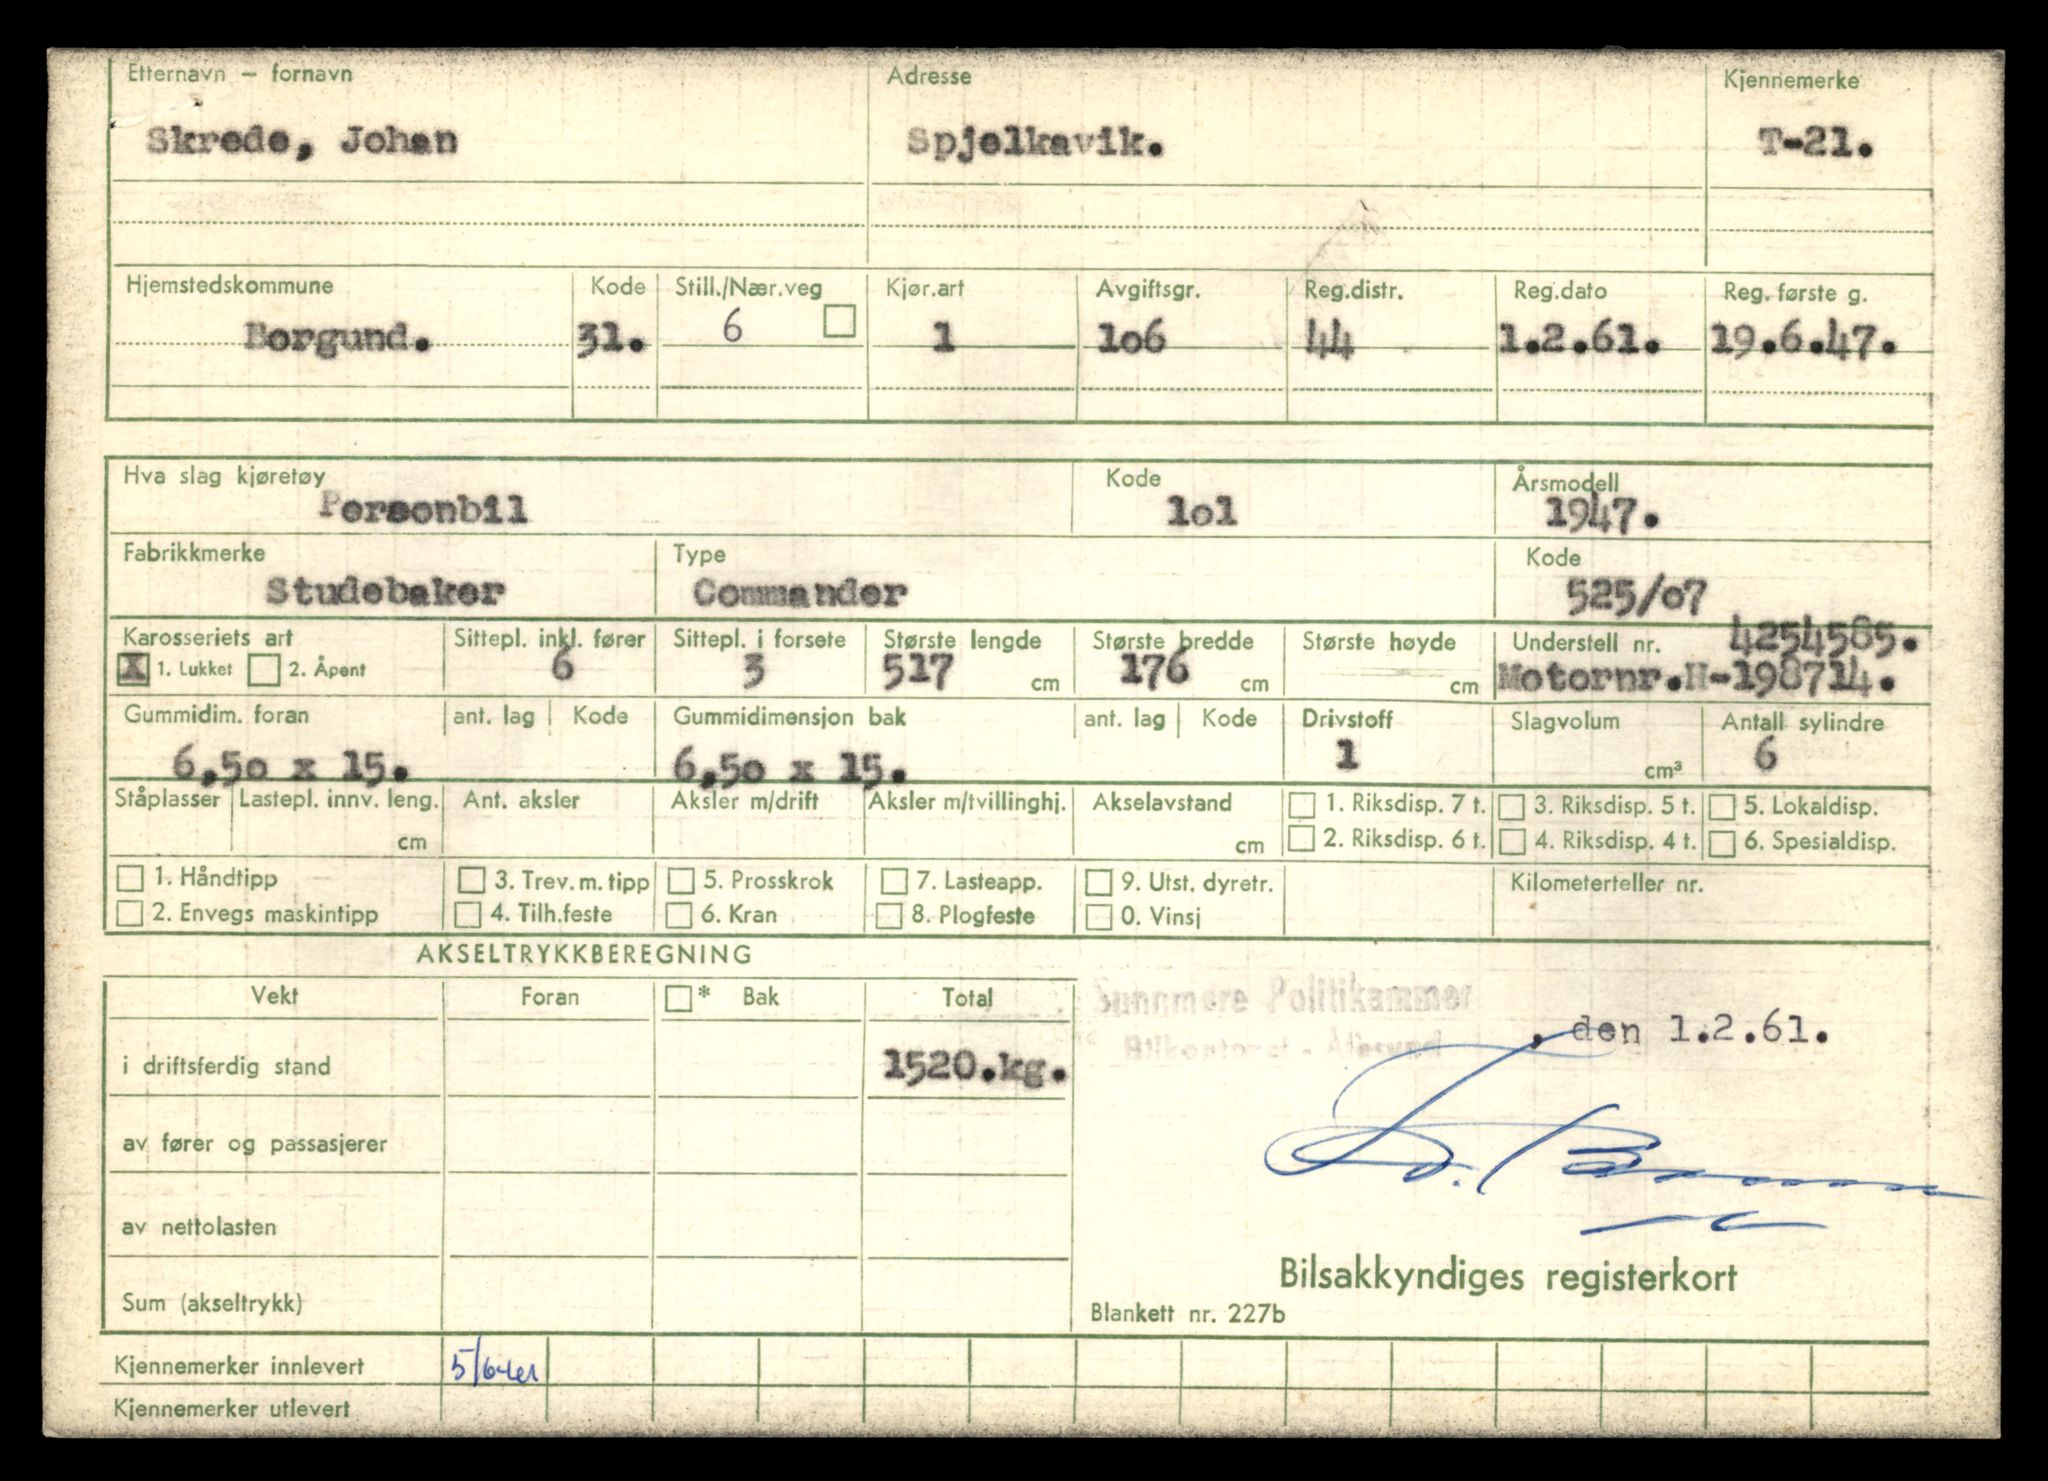 Etternavn – fornavn Adresse Kjennemerke
Skrede, Johan Spjelkavik. T-21.
Hjemstedskommune Kode Still./Nær.veg Kjør.art Avgiftsgr. Reg.distr. Reg.dato Reg. første g.
Borgund. 31. 6 1 1o6 44 1.2.61. 19.6.47.
Hva slag kjøretøy Kode Årsmodell
Personbil 1o1 1947.
Fabrikkmerke Type Kode
Studebaker Commander 525/o7
Karosseriets art Sittepl. inkl. fører Sittepl. i forsete Største lengde Største bredde Største høyde Understell nr. 4254585.
X 1. Lukket 2. Åpent 6 3 517 cm 176 cm cm Motornr.H-198714.
Gummidim. foran ant. lag Kode Gummidimensjon bak ant. lag Kode Drivstoff Slagvolum Antall sylindre
6,5o x 15. 6,5o x 15. 1 cm³ 6
Ståplasser Lastepl. innv. leng. Ant. aksler Aksler m/drift Aksler m/tvillinghj. Akselavstand 1. Riksdisp. 7 t. 3. Riksdisp. 5 t. 5. Lokaldisp.
cm cm 2. Riksdisp. 6 t. 4. Riksdisp. 4 t. 6. Spesialdisp.
1. Håndtipp 3. Trev. m. tipp 5. Prosskrok 7. Lasteapp. 9. Utst. dyretr. Kilometerteller nr.
2. Envegs maskintipp 4. Tilh.feste 6. Kran 8. Plogfeste 0. Vinsj
AKSELTRYKKBEREGNING
Vekt Foran * Bak Total
Sunnmøre Politikammer
Bilkontoret - Ålesund , den 1.2.61.
i driftsferdig stand 1520.kg.
av fører og passasjerer
av nettolasten
Bilsakkyndiges registerkort
Sum (akseltrykk)
Blankett nr. 227b
Kjennemerker innlevert
Kjennemerker utlevert